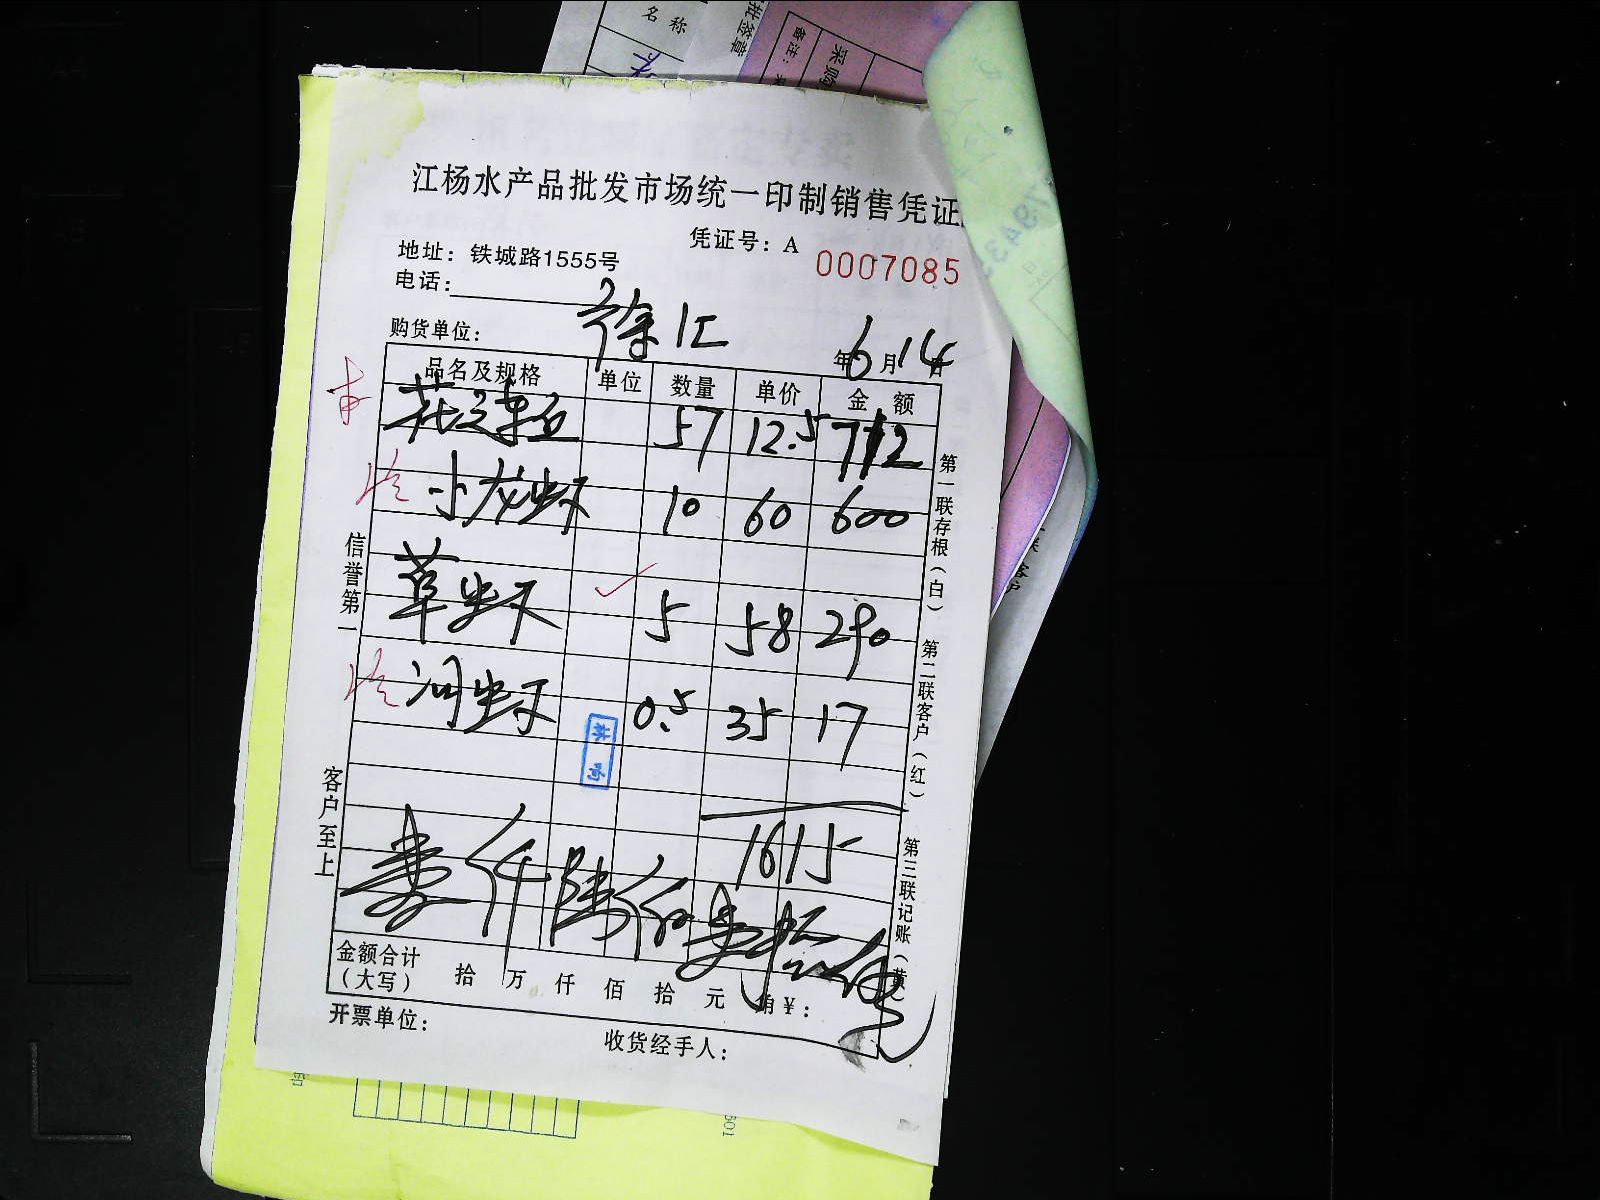 名 称
批签章
备注：
采购
江杨水产品批发市场统一印制销售凭证
凭证号：A 0007085
地址：铁城路1555号
电话：
购货单位： 徐汇 年 6 月 14 日
品名及规格 单位 数量 单价 金 额
花鲢 57 12.5 712
小龙虾 10 60 600
草虾 5 58 290
河虾 0.5 35 17
1615
壹仟陆佰壹拾伍
金额合计（大写） 拾 万 仟 佰 拾 元 角 ¥：
开票单位： 收货经手人：
信誉第一
客户至上
第一联存根（白）
第二联客户（红）
第三联记账（黄）